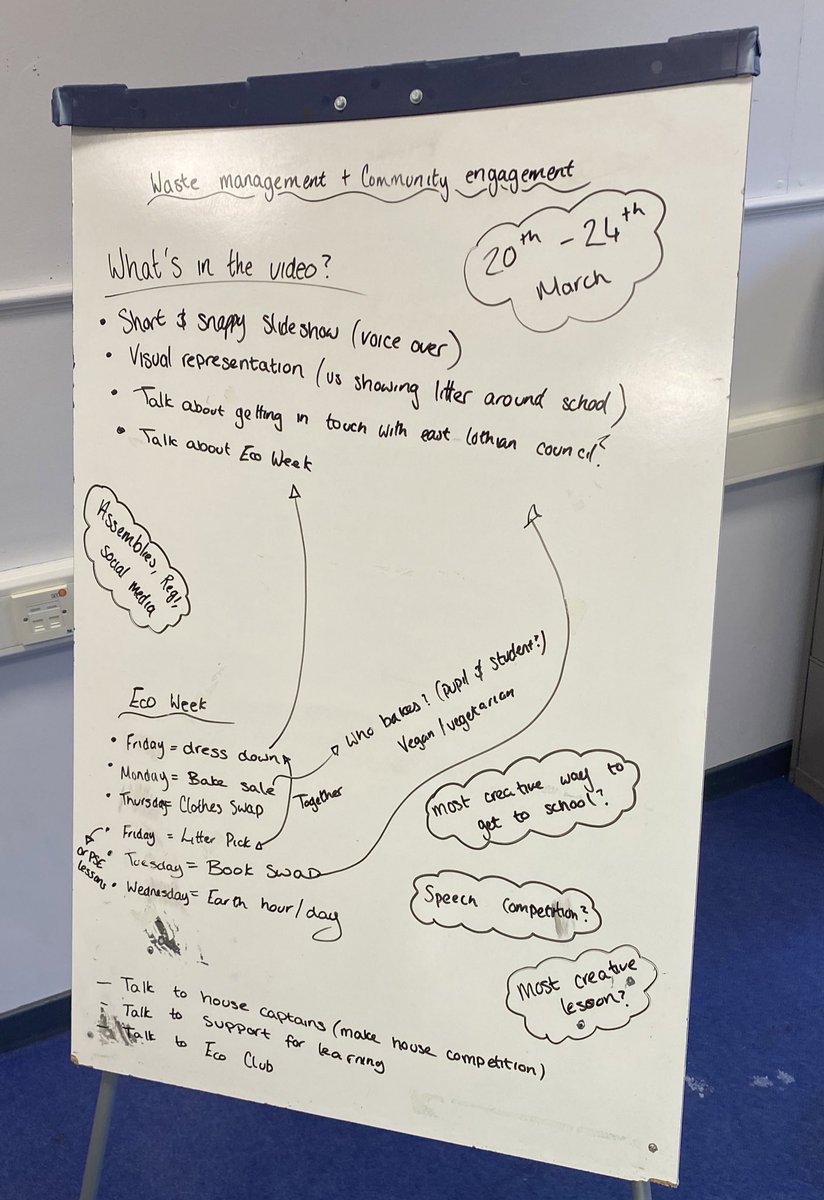 Waste management + Community engagement
20th - 24th
March
What's in the video?
• Short & snappy slideshow (voice over)
• Visual representation (us showing litter around school)
• Talk about getting in touch with east lothian council?
• Talk about Eco Week
Assemblies, Reg,
social media
Eco Week
• Friday = dress down
• Monday = Bake sale
• Thursday = Clothes Swap
• Friday = Litter Pick
• Tuesday = Book Swap
• Wednesday = Earth hour/day
or PSE
lessons
Together
Who bakes? (pupil & student?)
Vegan/vegetarian
most creative way to
get to school?
Speech Competition?
Most creative
lesson?
- Talk to house captains (make house competition)
- Talk to Support for learning
- Talk to Eco Club